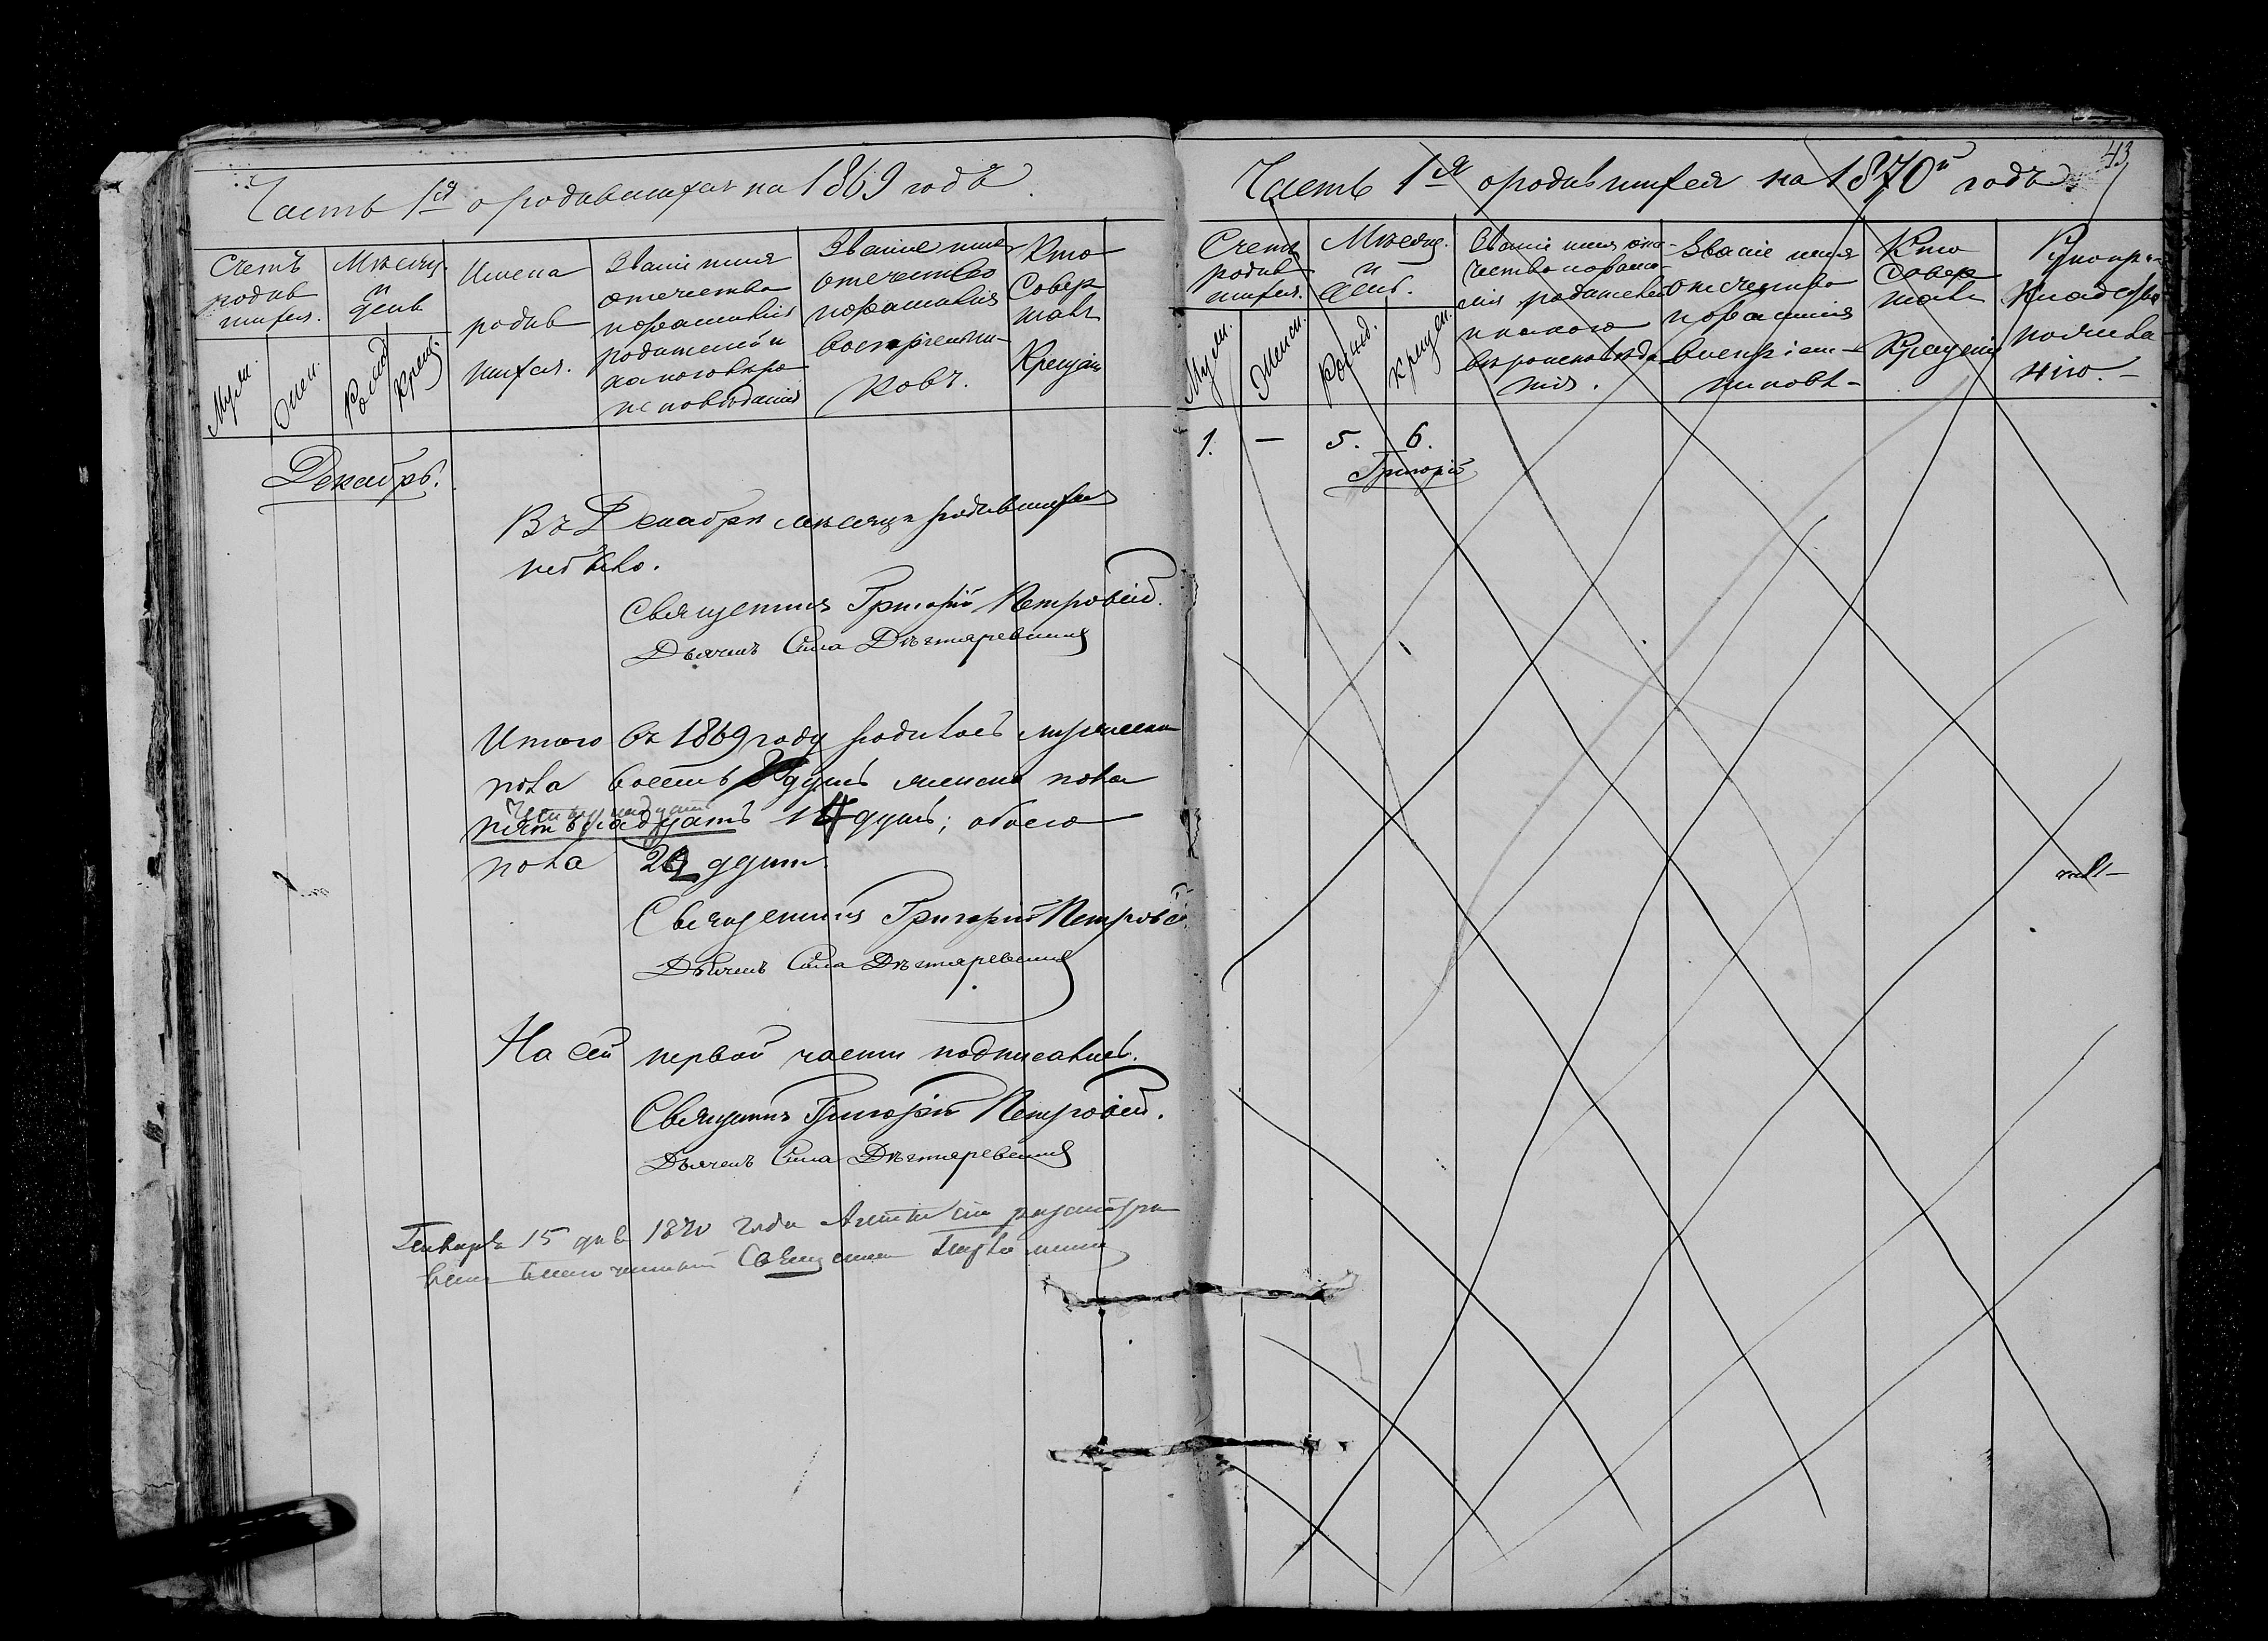 Часть 1я о родившихся на 1869 годъ.
Счетъ
родив
шихся.
Муж.
Жен.
Мѣсяц.
и
день
Рожд
Крещ.
Имена
родив
шихся.
Званіе имя
отечество
и фамилія
родителей и
какого вѣро
исповѣданія
Званіе имя
отечество
и фамилія
воспріемни-
ковъ.
Кто
Совер
шалъ
Крещен
Декабрь.
Въ Декабрѣ мѣсяцѣ родившихся
не было.
Священникъ Григорій Петровскій.
Дьячекъ Сила Дегтяревский
Итого въ 1869 году родилось мужеска
пола восемь 8 душъ женска пола
четырнадцать
пятьнадцать 14 душъ; обоего
пола 22 души
Священникъ Григорій Петровс
Дьячекъ Сила Дегтяревский
На сей первой части подписались.
Священникъ Григорій Петровскій.
Дьячекъ Сила Дегтяревский
Генваря 15 дня 1870 года
Благочинный Священник
43
Часть 1я о родившихся на 1870й годъ.
Счетъ
родив
шихся.
Муж.
Женск.
Мѣсяц.
и
день.
Рожд.
Крещен.
Званіе имя оте-
чество и фами-
лія родителей
и какого
вѣроисповѣда
нія.
Званіе имя
отечество
и фамилія
воспріем-
никовъ-
Кто
Совер
шалъ
Крещеніе
Рукопри-
кладство
по жела
нію.-
1. — 5. 6.
Григорій